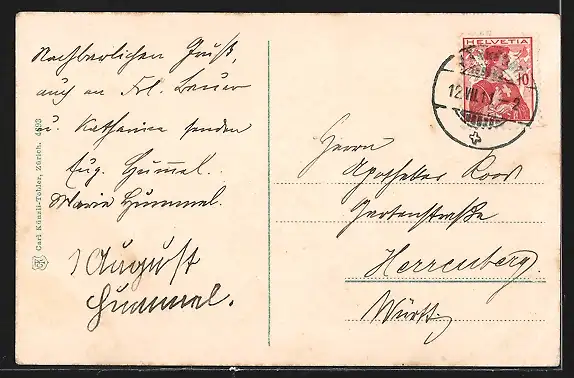 Nachbarlichen Gruß,
auch an Frl. Breuer
u. Katharine senden
Eug. Hummel.
Marie Hummel.
August
Hummel.
Carl Künzli-Tobler, Zürich. 4693
HELVETIA
10
12.VII.11
2
Herrn
Apotheker Roos
Gartenstraße
Herrenberg.
Württ.